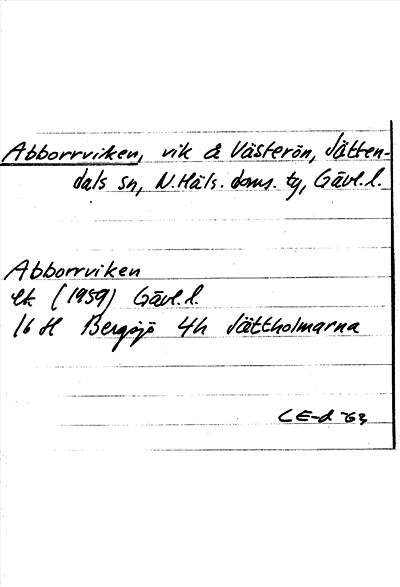 Abborrviken, vik å Västerön, Jätten-
dals sn, N.Häls. doms. tg, Gävl.l.
Abborrviken
ek (1959) Gävl.l.
16 H Bergsjö 4h Jättholmarna
CE-d -63